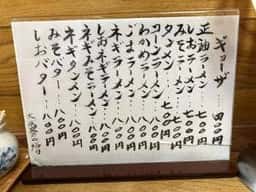 ギョーザ……四〇〇円
正油ラーメン…七〇〇円
しおラーメン…七〇〇円
みそラーメン…七〇〇円
タンメン……七〇〇円
コーンラーメン…八〇〇円
わかめラーメン…八〇〇円
ごまラーメン…八〇〇円
ネギラーメン…八〇〇円
しおネギラーメン…八〇〇円
ネギみそラーメン…八〇〇円
ネギタンメン…八〇〇円
みそバター…八〇〇円
しおバター…八〇〇円